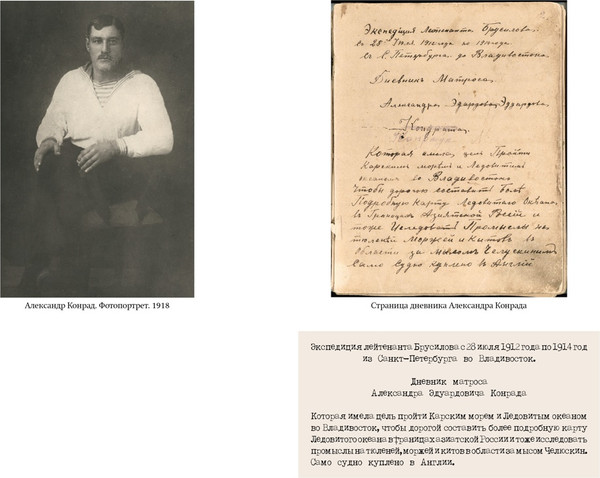 Александр Конрад. Фотопортрет. 1918
Экспедиция Лейтенанта Брусилова.
Съ 28 Июля 1912 года по 1914 года.
съ С. Петербурга до Владивостока
Дневникъ Матроса.
Александра
Кондрата.
Которая имела цель Пройти
Карскимъ моремъ и Ледовитимъ
океаномъ во Владивостокъ
Чтобы дорогою составить боле
Подробную карту Ледовитаго Океана
въ Границахъ Азиятской Россій и
тоже Иследовать Промыслы на
Моржей и Китовъ въ
области за мысомъ Челускинымъ
Само Судно куплено в Англій
Страница дневника Александра Конрада
Экспедиция лейтенанта Брусилова с 28 июля 1912 года по 1914 год
из Санкт-Петербурга во Владивосток.
Дневник матроса
Александра Эдуардовича Конрада
Которая имела цель пройти Карским морем и Ледовитым океаном
во Владивосток, чтобы дорогой составить более подробную карту
Ледовитого океана в границах азиатской России и тоже исследовать
промыслы на тюленей, моржей и китов в области за мысом Челюскин.
Само судно куплено в Англии.